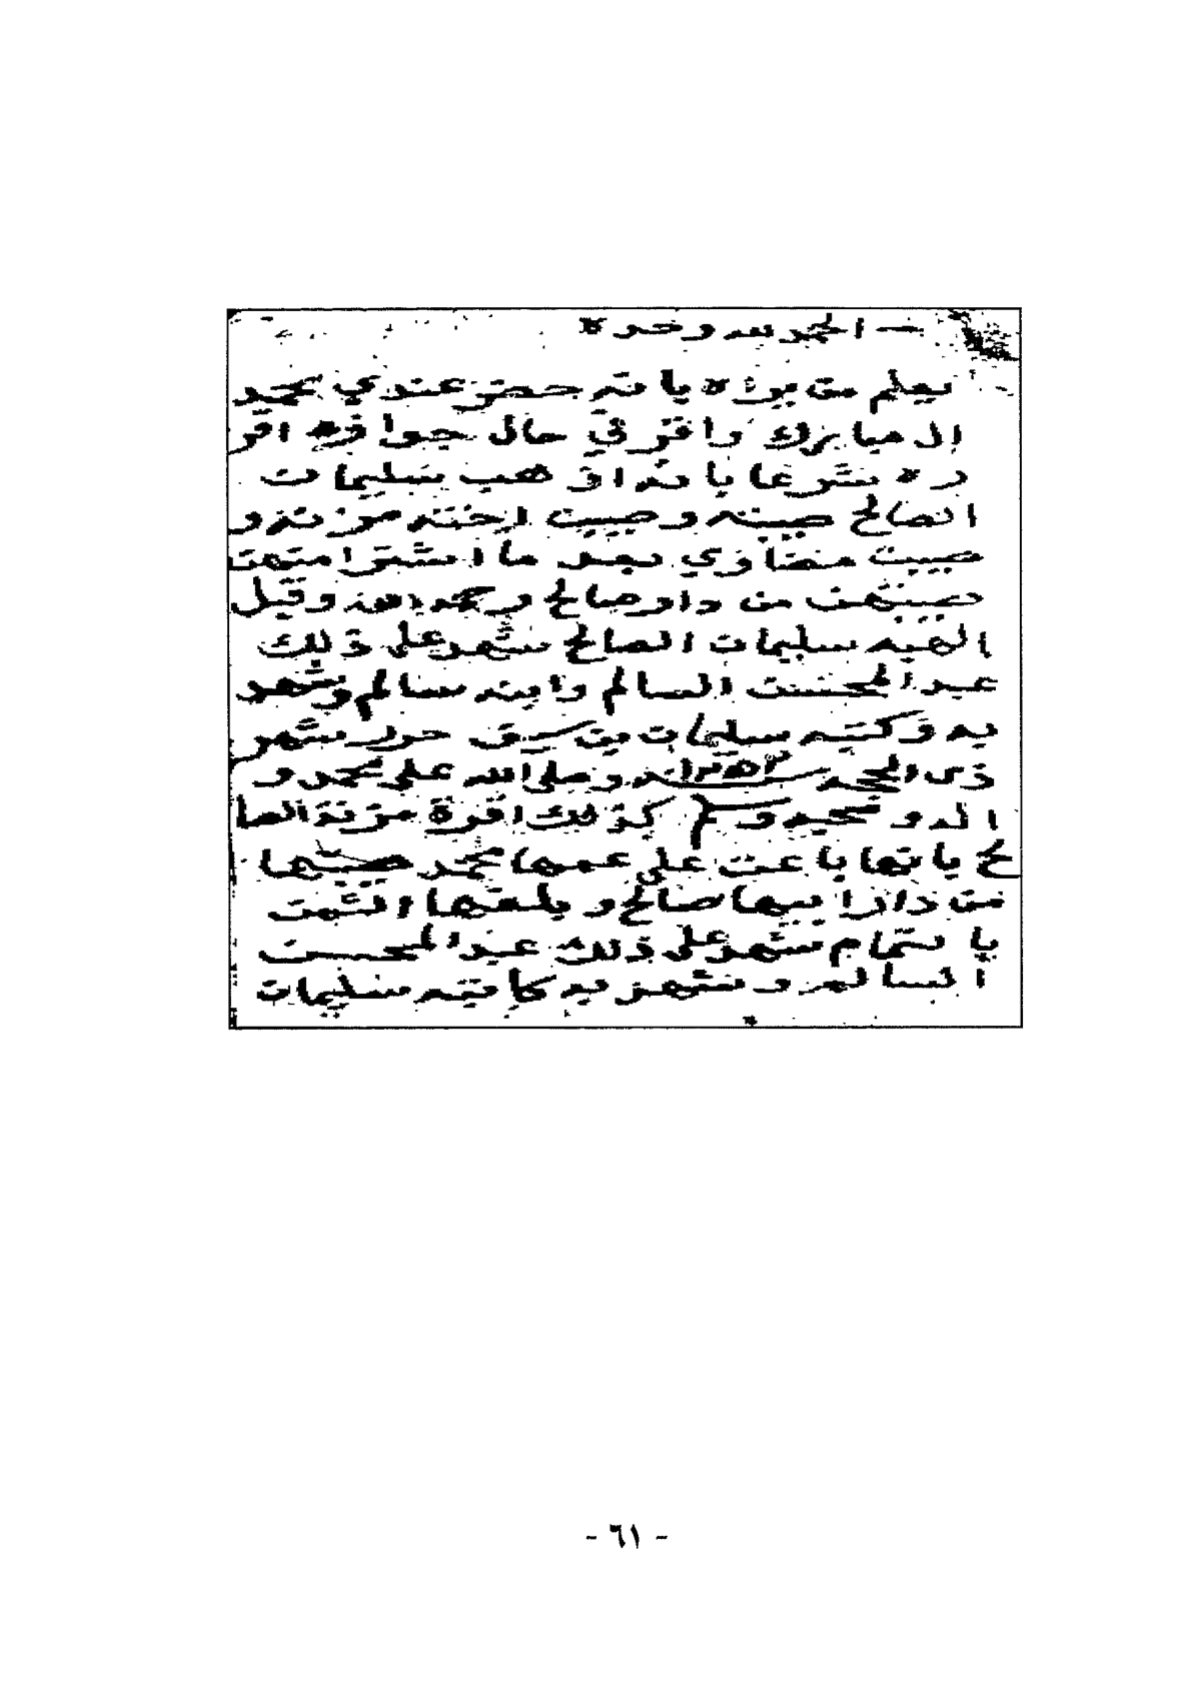 الحمد لله وحده
يعلم من يراه بانه حضر عندي محمد
ال مبارك واقر في حال جوازه اقر
ره شرعا بانه اوهب سليمان
الصالح صيبته وصيبت اخته مزنه و
صيبت منضاوي بعد ما اشترا منهن
صيبتهن من دار صالح رحمه الله وقبل
الهبه سليمان الصالح شهد على ذلك
عبد المحسن السالم وابنه سالم وشهد
به وكتبه سليمان بن سيف حرر شهر
ذي الحجه سنه وصلى الله على محمد و
اله وصحبه وسلم كذلك اقرة مزنة الصا
لح بانها باعت على عمها محمد صيبتها
من دار ابيها صالح و بلغها الثمن
بالتمام شهد على ذلك عبد المحسن
السالم وشهد به كاتبه سليمان
- ٦١ -